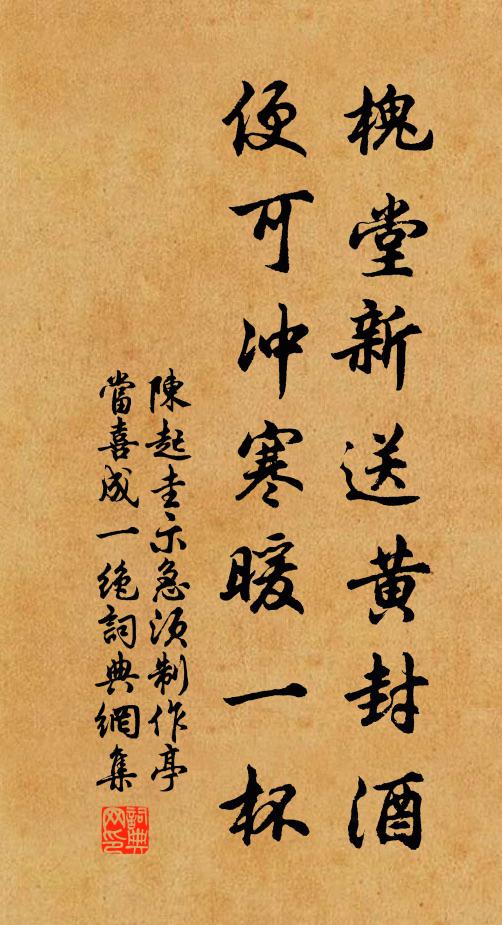 槐堂新送黄封酒
便可冲寒暖一杯
陳起圭示急須制作亭
當喜成一絶詞典網集
詞典网印